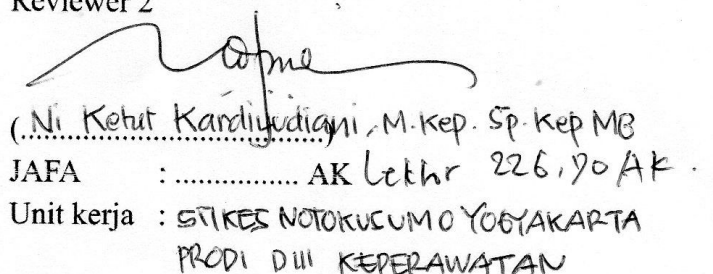 Reviewer 2
(Ni Ketut Kardiyudiani, M.Kep. Sp.Kep MB
JAFA : ............... AK Lektor 226,90 AK.
Unit kerja : STIKES NOTOKUSUMO YOGYAKARTA
PRODI DIII KEPERAWATAN